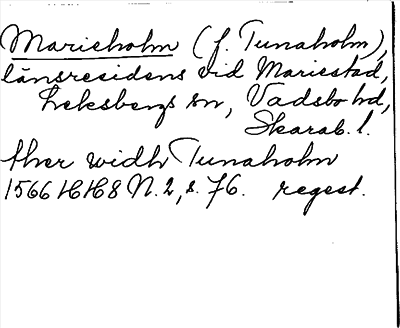 Marieholm (f. Tunaholm),
länsresidens vid Mariestad,
Leksbergs sn, Vadsbo hd,
Skarab. l.
ther widh Tunaholm
1566 HH8 N. 2, s. 76. regest.